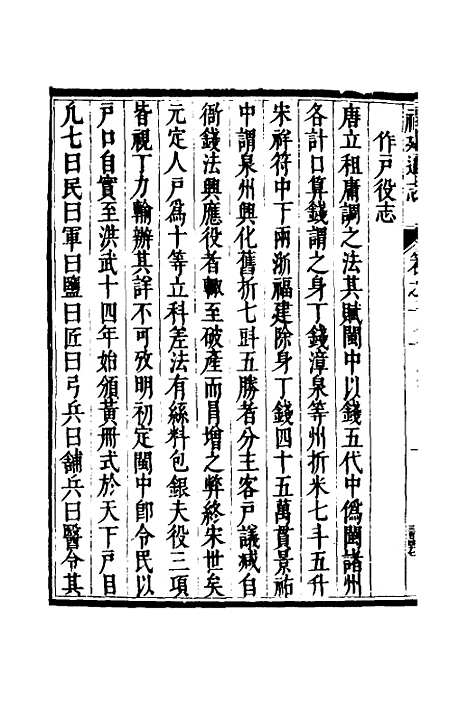 福建通志
卷之十
作戸役志
唐立租庸調之法其賦閩中以錢五代中僞閩諸州
各計口算錢謂之身丁錢漳泉等州折米七斗五升
宋祥符中下兩浙福建除身丁錢四十五萬貫景祐
中謂泉州興化舊折七㪷五勝者分主客戸議减自
衙錢法興應役者輙至破產而冐增之弊終宋世矣
元定人戸爲十等立科差法有絲料包銀夫役三項
皆視丁力輸辦其詳不可攷明初定閩中卽令民以
戸口自實至洪武十四年始頒黃冊式於天下戸目
凡七曰民曰軍曰鹽曰匠曰弓兵曰舖兵曰醫令其